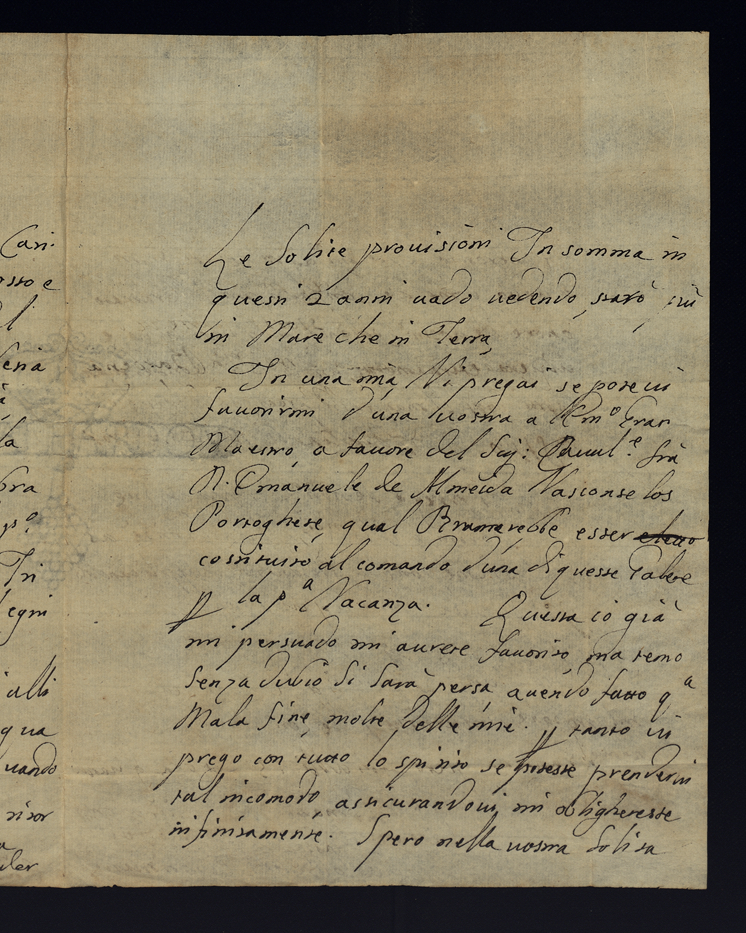 Cari-
osso e
la
bra
p.º
Tri
legni
alli
qua
uando
risor
Le Solite prouisioni In somma in
questi 2 anni uado uedendo, starò più
in Mare che in Terra
In una mia, Vi pregai se poteui
fauorirmi d'una uostra a Em.º Gran
Maestro, a fauore del Sig: Caual.e frà
D. Emanuele de Almeida Vasconselos
Portoghese, qual Bramarebbe esser eletto
costituito al comando d'una di queste Galere
p la p.a Vacanza. Questa io già
mi persuado mi aurete fauorito, ma temo
Senza dubio si sarà persa auendo fatto q.a
Mala fine molte delle mie. p tanto ui
prego con tutto lo spirito se potesse prenderui
tal incomodo, assicurandoui, mi obligareste
infinitamente. Spero nella uostra Solita